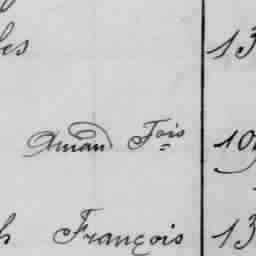 les 13
Amand Fois 109
h François 13